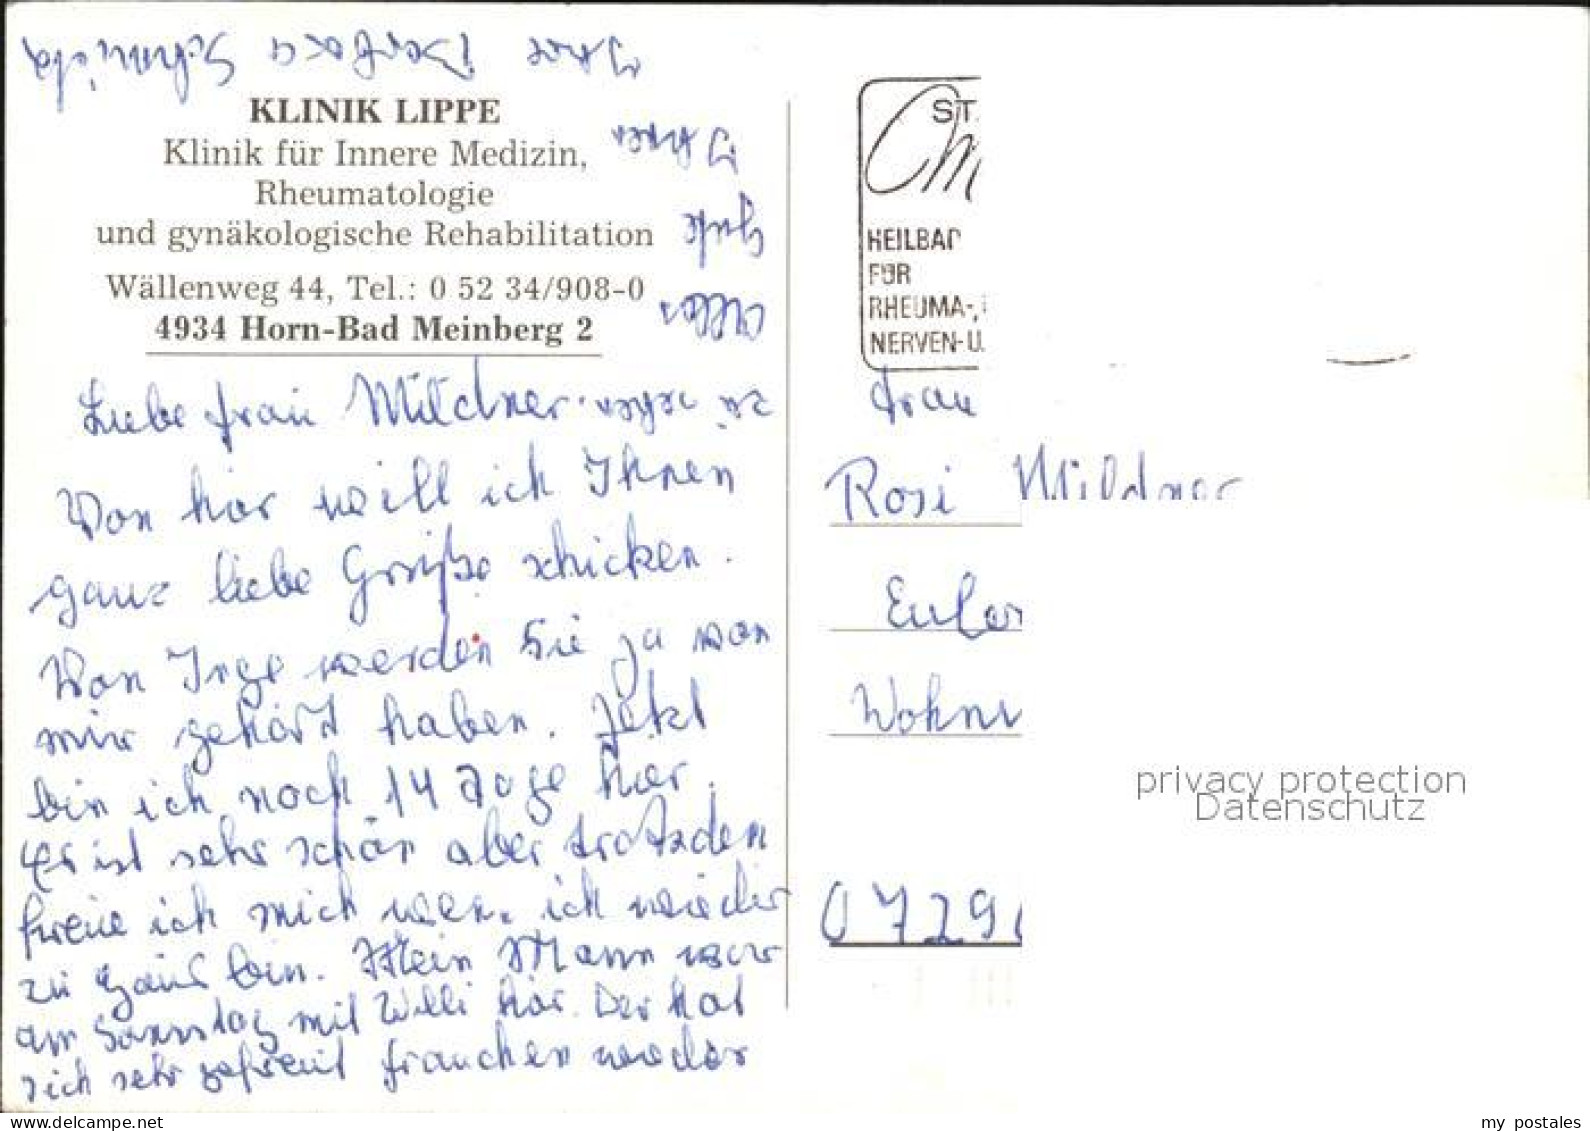 KLINIK LIPPE
Klinik für Innere Medizin,
Rheumatologie
und gynäkologische Rehabilitation
Wällenweg 44, Tel.: 0 52 34/908-0
4934 Horn-Bad Meinberg 2
Liebe Frau Mildner.
Von hier will ich Ihnen
ganz liebe Grüße schicken.
Von Inge werden Sie ja von
mir gehört haben. Jetzt
bin ich noch 14 Tage hier.
Es ist sehr schön aber trotzden
freue ich mich wen. ich wieder
zu Haus bin. Mein Mann war
am Sonntag mit Willi hier. Der hat
sich sehr gefreut Frauchen wieder
zu sehen
Alles
Gute
Ihnen
Ihre Barbara Schmidt
ST.
HEILBAD
FÜR
RHEUMA-,
NERVEN-U.
Frau
Rosi Mildner
Euler
Wohn
0729
privacy protection
Datenschutz
www.delcampe.net
my_postales